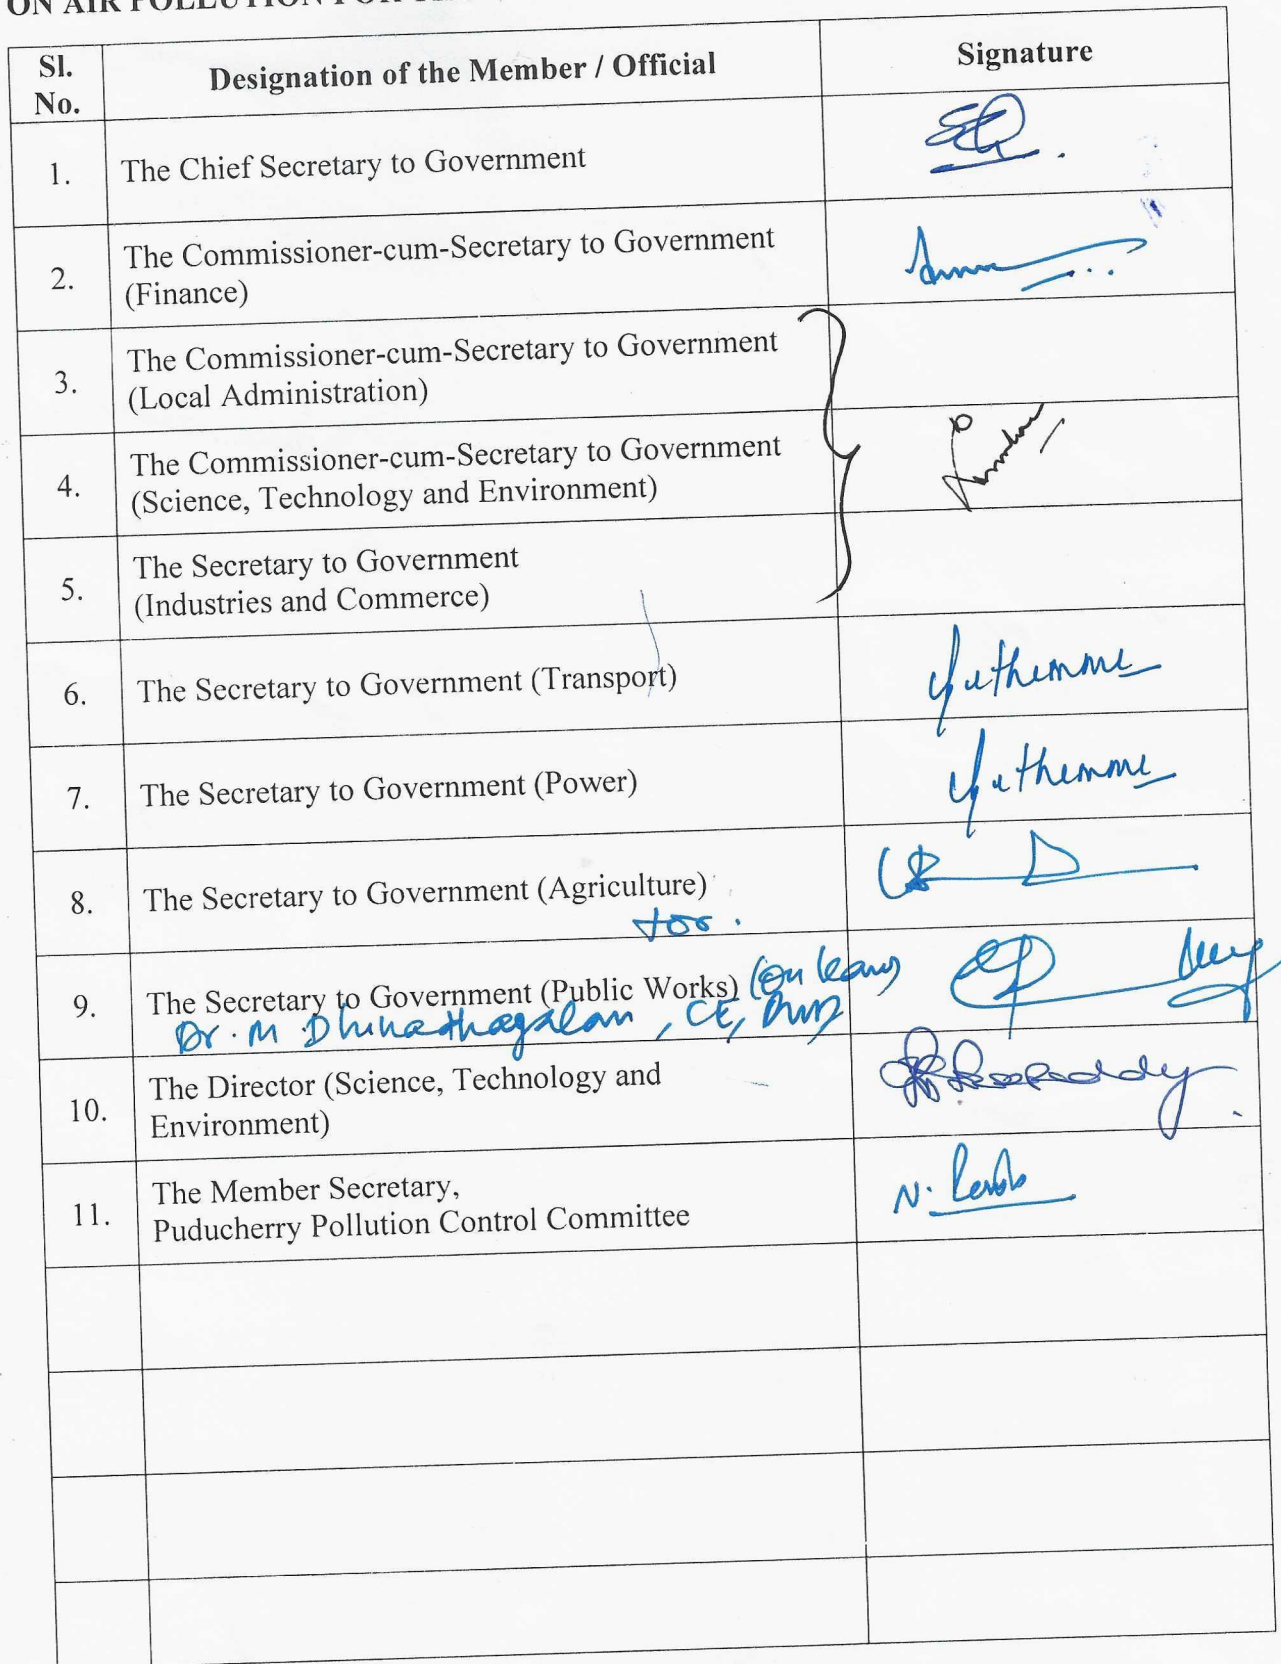 ON AIR POLLUTION FOR
Sl. No.
Designation of the Member / Official
Signature
1.
The Chief Secretary to Government
2.
The Commissioner-cum-Secretary to Government
(Finance)
3.
The Commissioner-cum-Secretary to Government
(Local Administration)
4.
The Commissioner-cum-Secretary to Government
(Science, Technology and Environment)
5.
The Secretary to Government
(Industries and Commerce)
6.
The Secretary to Government (Transport)
7.
The Secretary to Government (Power)
8.
The Secretary to Government (Agriculture)
for.
9.
The Secretary to Government (Public Works) (on leave)
Dr. M Dhinadhayalan, CE, PWD
10.
The Director (Science, Technology and
Environment)
11.
The Member Secretary,
Puducherry Pollution Control Committee
N.